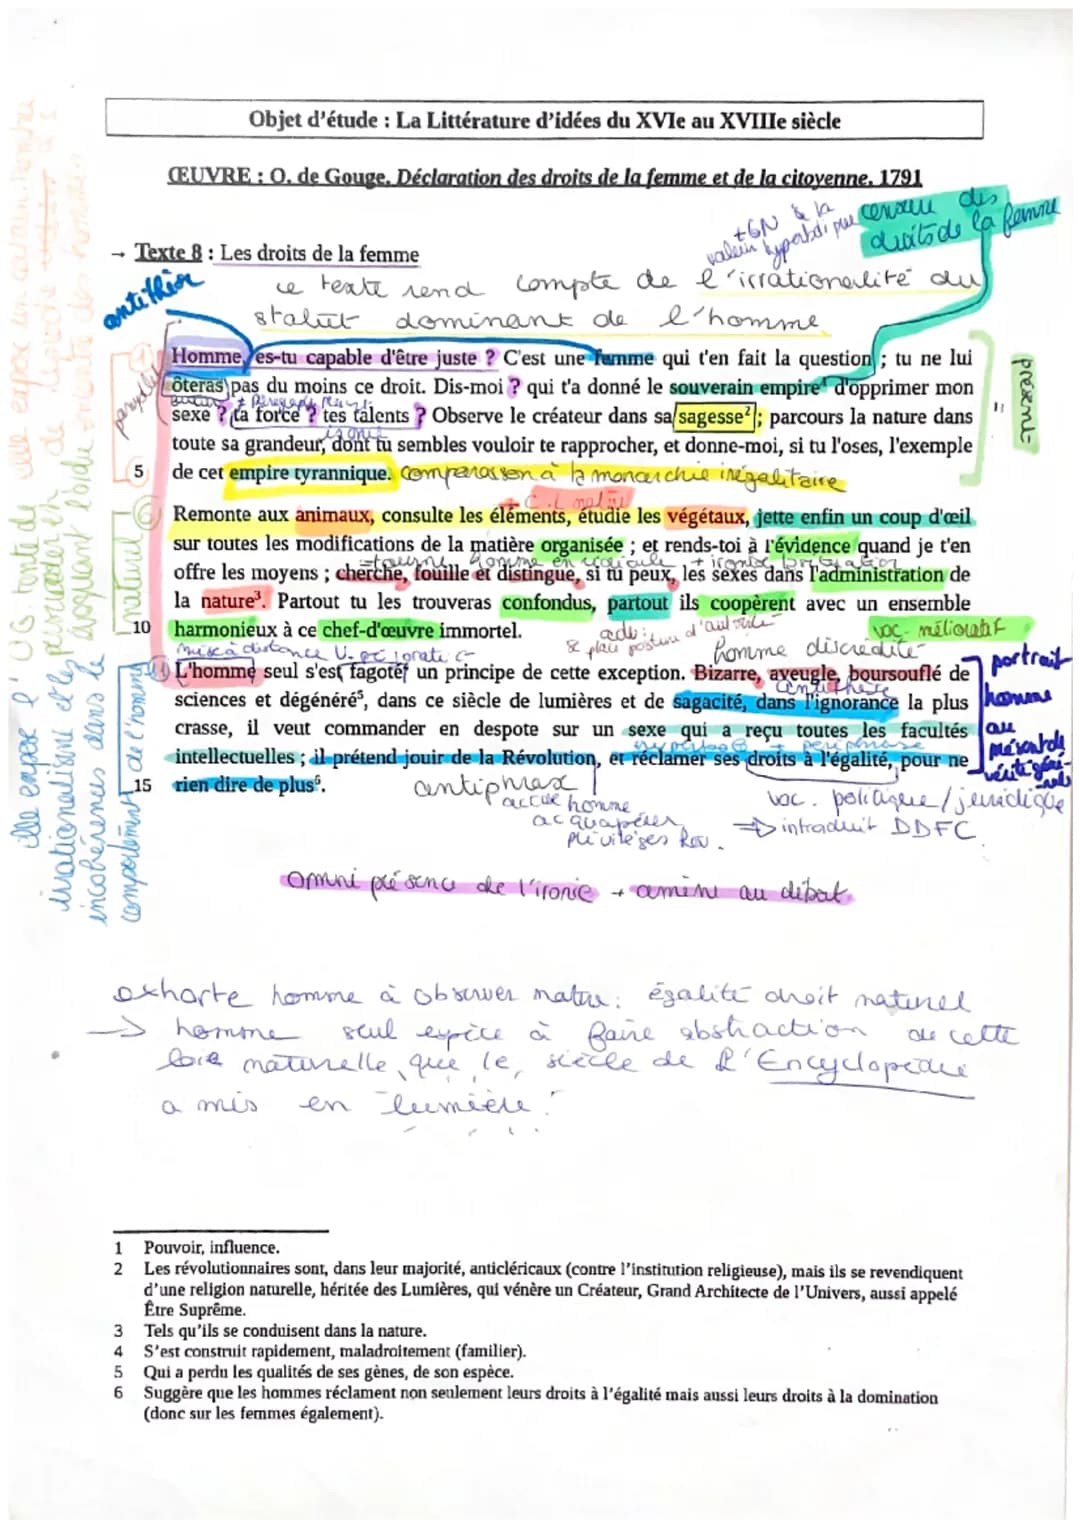 Objet d'étude : La Littérature d'idées du XVIe au XVIIIe siècle
ŒUVRE : O. de Gouge, Déclaration des droits de la femme et de la citoyenne, 1791
censure des
droits de la femme
+ GN & la
valeur
→ Texte 8 : Les droits de la femme
antithèse
ce texte rend compte de l'irrationalité du
statut dominant de l'homme
Homme, es-tu capable d'être juste ? C'est une femme qui t'en fait la question ; tu ne lui
ôteras pas du moins ce droit. Dis-moi ? qui t'a donné le souverain empire¹ d'opprimer mon
sexe ? ta force ? tes talents ? Observe le créateur dans sa sagesse² ; parcours la nature dans
ironie
toute sa grandeur, dont tu sembles vouloir te rapprocher, et donne-moi, si tu l'oses, l'exemple
5 de cet empire tyrannique. comparaison à la monarchie inégalitaire
présent
+ C.L nature
Remonte aux animaux, consulte les éléments, étudie les végétaux, jette enfin un coup d'œil
sur toutes les modifications de la matière organisée ; et rends-toi à l'évidence quand je t'en
tourne homme en ridicule + ironie
offre les moyens ; cherche, fouille et distingue, si tu peux, les sexes dans l'administration de
la nature³. Partout tu les trouveras confondus, partout ils coopèrent avec un ensemble
10 harmonieux à ce chef-d'œuvre immortel.
voc mélioratif
se place posture d'autorité
mise à distance
homme discrédité
L'homme seul s'est fagoté⁴ un principe de cette exception. Bizarre, aveugle, boursouflé de
antithèse
sciences et dégénéré⁵, dans ce siècle de lumières et de sagacité, dans l'ignorance la plus
crasse, il veut commander en despote sur un sexe qui a reçu toutes les facultés
hyperbole + périphrase
intellectuelles ; il prétend jouir de la Révolution, et réclamer ses droits à l'égalité, pour ne
15 rien dire de plus⁶.
portrait
homme
au
présent de
vérité géné-
rale
antiphrase
accuse homme
acquapérer
privilèges Rév.
voc. politique/juridique
⇒ introduit DDFC
omniprésence de l'ironie + amène au débat
exhorte homme à observer nature : égalité droit naturel
→ homme seul espèce à faire abstraction de cette
loi naturelle, que le siècle de l'Encyclopédie
a mis en lumière.
naturel
de l'homme
elle expose l'
irrationalisme et les
incohérences dans le
comportement
OG tente de
persuader en
évoquant l'ordre
1 Pouvoir, influence.
2 Les révolutionnaires sont, dans leur majorité, anticléricaux (contre l'institution religieuse), mais ils se revendiquent
d'une religion naturelle, héritée des Lumières, qui vénère un Créateur, Grand Architecte de l'Univers, aussi appelé
Être Suprême.
3 Tels qu'ils se conduisent dans la nature.
4 S'est construit rapidement, maladroitement (familier).
5 Qui a perdu les qualités de ses gènes, de son espèce.
6 Suggère que les hommes réclament non seulement leurs droits à l'égalité mais aussi leurs droits à la domination
(donc sur les femmes également).